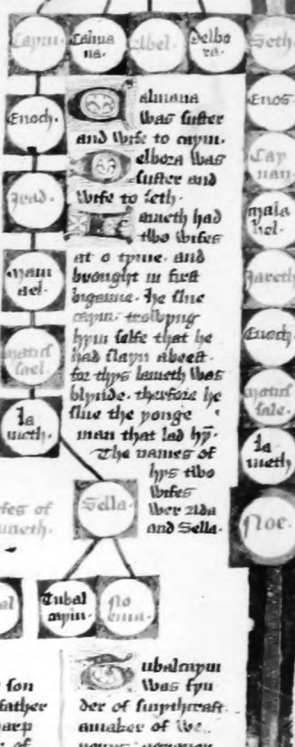 Caym.
Calma
na.
Abel.
Delbo
ra.
Seth.
Enoch.
Enos.
Cay
nan.
Irad.
mala
hel.
mani
ael.
Jareth
Enoch
matus
sael.
matus
sale.
la
meth.
la
meth.
Noe.
Calmana
was suster
and wyfe to caym.
Delbora was
suster and
wyfe to seth.
Lameth had
two wifes
at o tyme. and
brought in first
bigamie. he slue
caym. trowyng
hym selfe that he
had slayn a beest.
for thys lameth was
blynde. therfore he
slue the yonge
man that lad hy̅.
The names of
hys two
wifes
wer ada
and Sella.
Sella.
of
meth.
Tubal
caym.
No
ema.
Tubalcaym
was fyn
der of smythcraft.
a maker of
son
father
harp
of